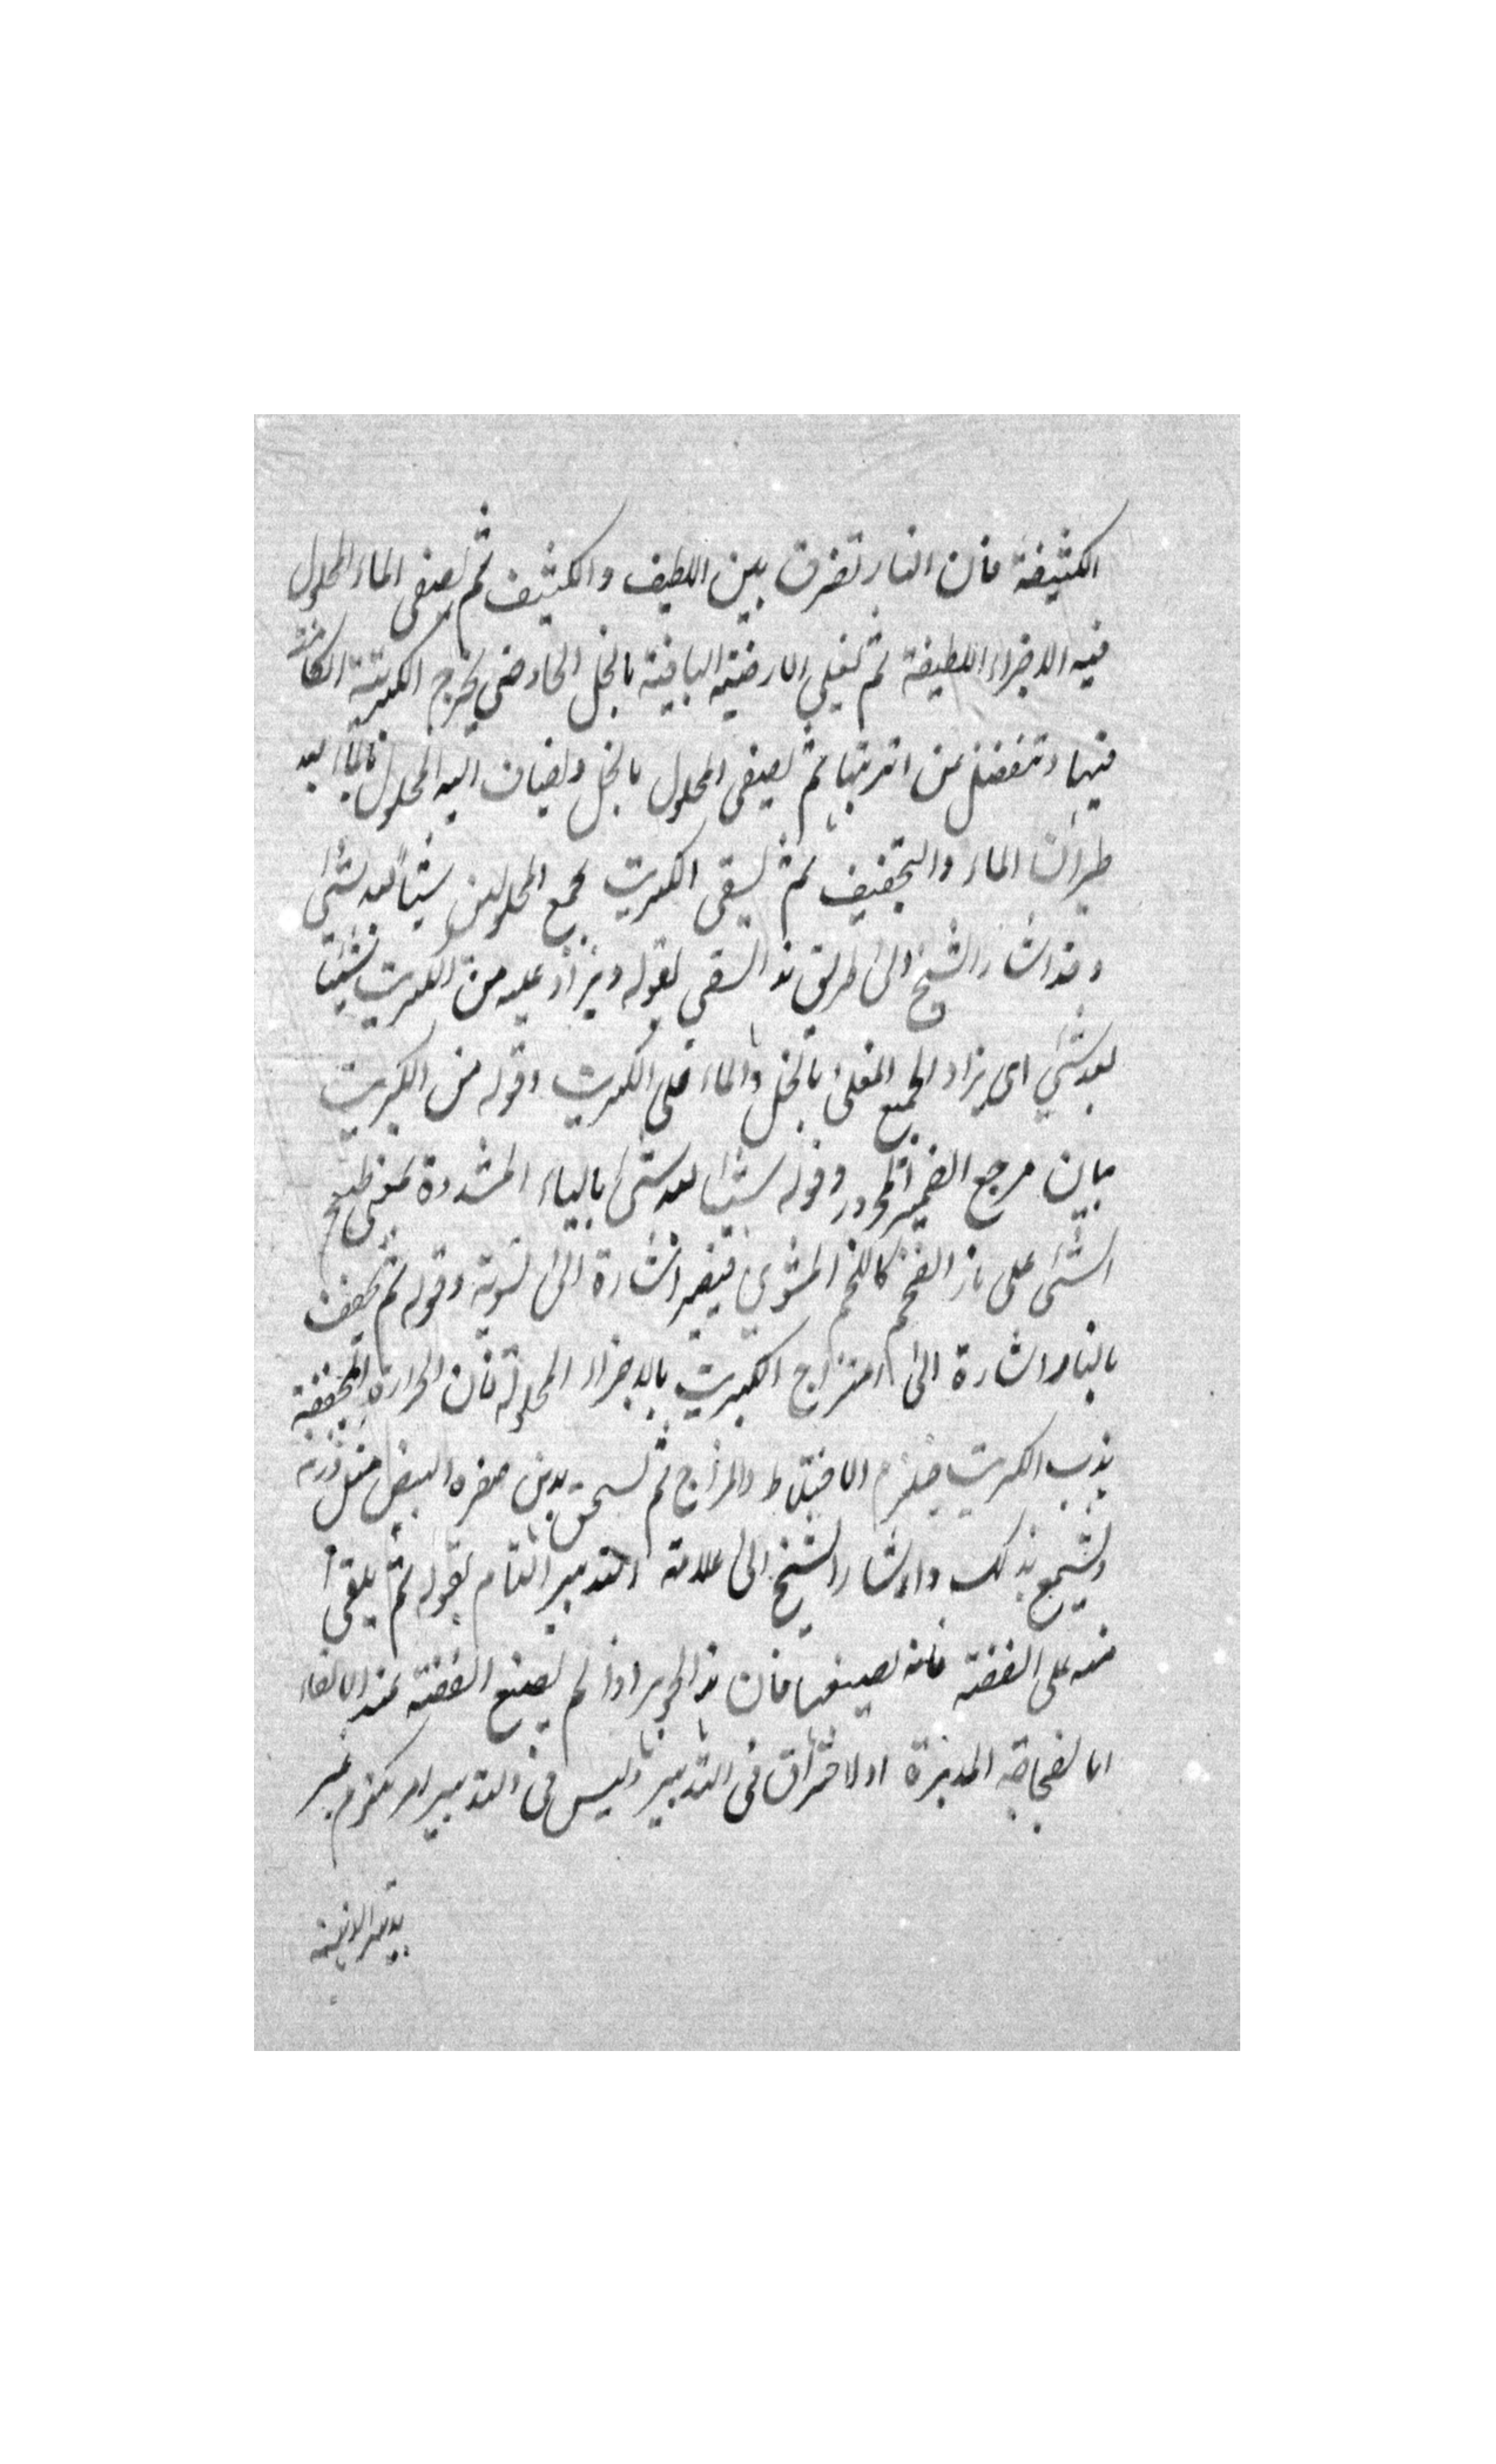 الكثيفة فان النار تفرق بين اللطيف والكثيف ثم يصفى الماء المحلول
فيه الاجزاء اللطيفة ثم تغلي الارضية الباقية بالخل الحاد حتى يخرج الكبريتية الكائنة
فيها وتنفصل من اتربتها ثم يصفى المحلول بالخل ويضاف اليه المحلول بالماء بعد
طيران الماء والتجفيف ثم يسقى الكبريت بجميع المحلولين شيئاً بعد شئ
وقد اشار الشيخ الى طريق هذا السقي بقوله ويزاد عليه من الكبريت شيئا
بعد شئ اى يزاد الجميع المغلى بالخل والماء على الكبريت وقوله من الكبريت
بيان مرجع الضمير المجرور وقوله شيئا بعد شئ بالياء المشددة بمعنى طبخ
الشئ على نار الفحم كاللحم المشوي ففيه اشارة الى تشويته وقوله ثم يجفف
بالنار اشارة الى امتزاج الكبريت بالاجزاء المحلولة فان الحرارة المجففة
يذيب الكبريت فيلزم الاختلاط والمزاج ثم يسحق بدهن صفرة البيض مثل وزنه
ويشمع بذلك واشار الشيخ الى علامة التدبير التام بقوله ثم يلقى
منه على الفضة فانه يصبغها فان هذا الحجر اذا لم يصبغ الفضة عند الالقاء
اما لفجاجة المدبرة او لاحتراق في التدبير وليس في التدبير امر يلزم غير